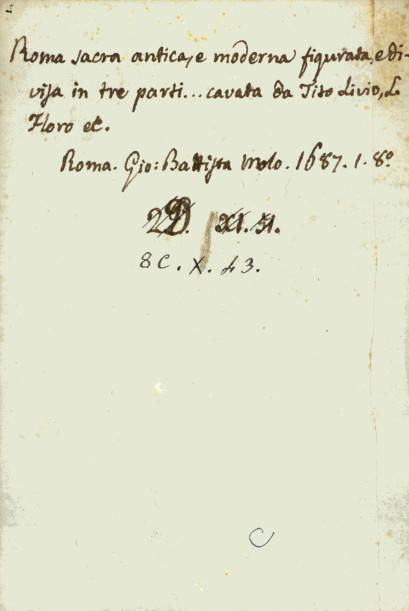 Roma sacra antica, e moderna figurata, e di-
visa in tre parti... cavata da Tito Livio, L.
Floro ec.
Roma. Gio: Battista Molo. 1687. 1. 8º
XI. 51.
8C. X. 43.
C